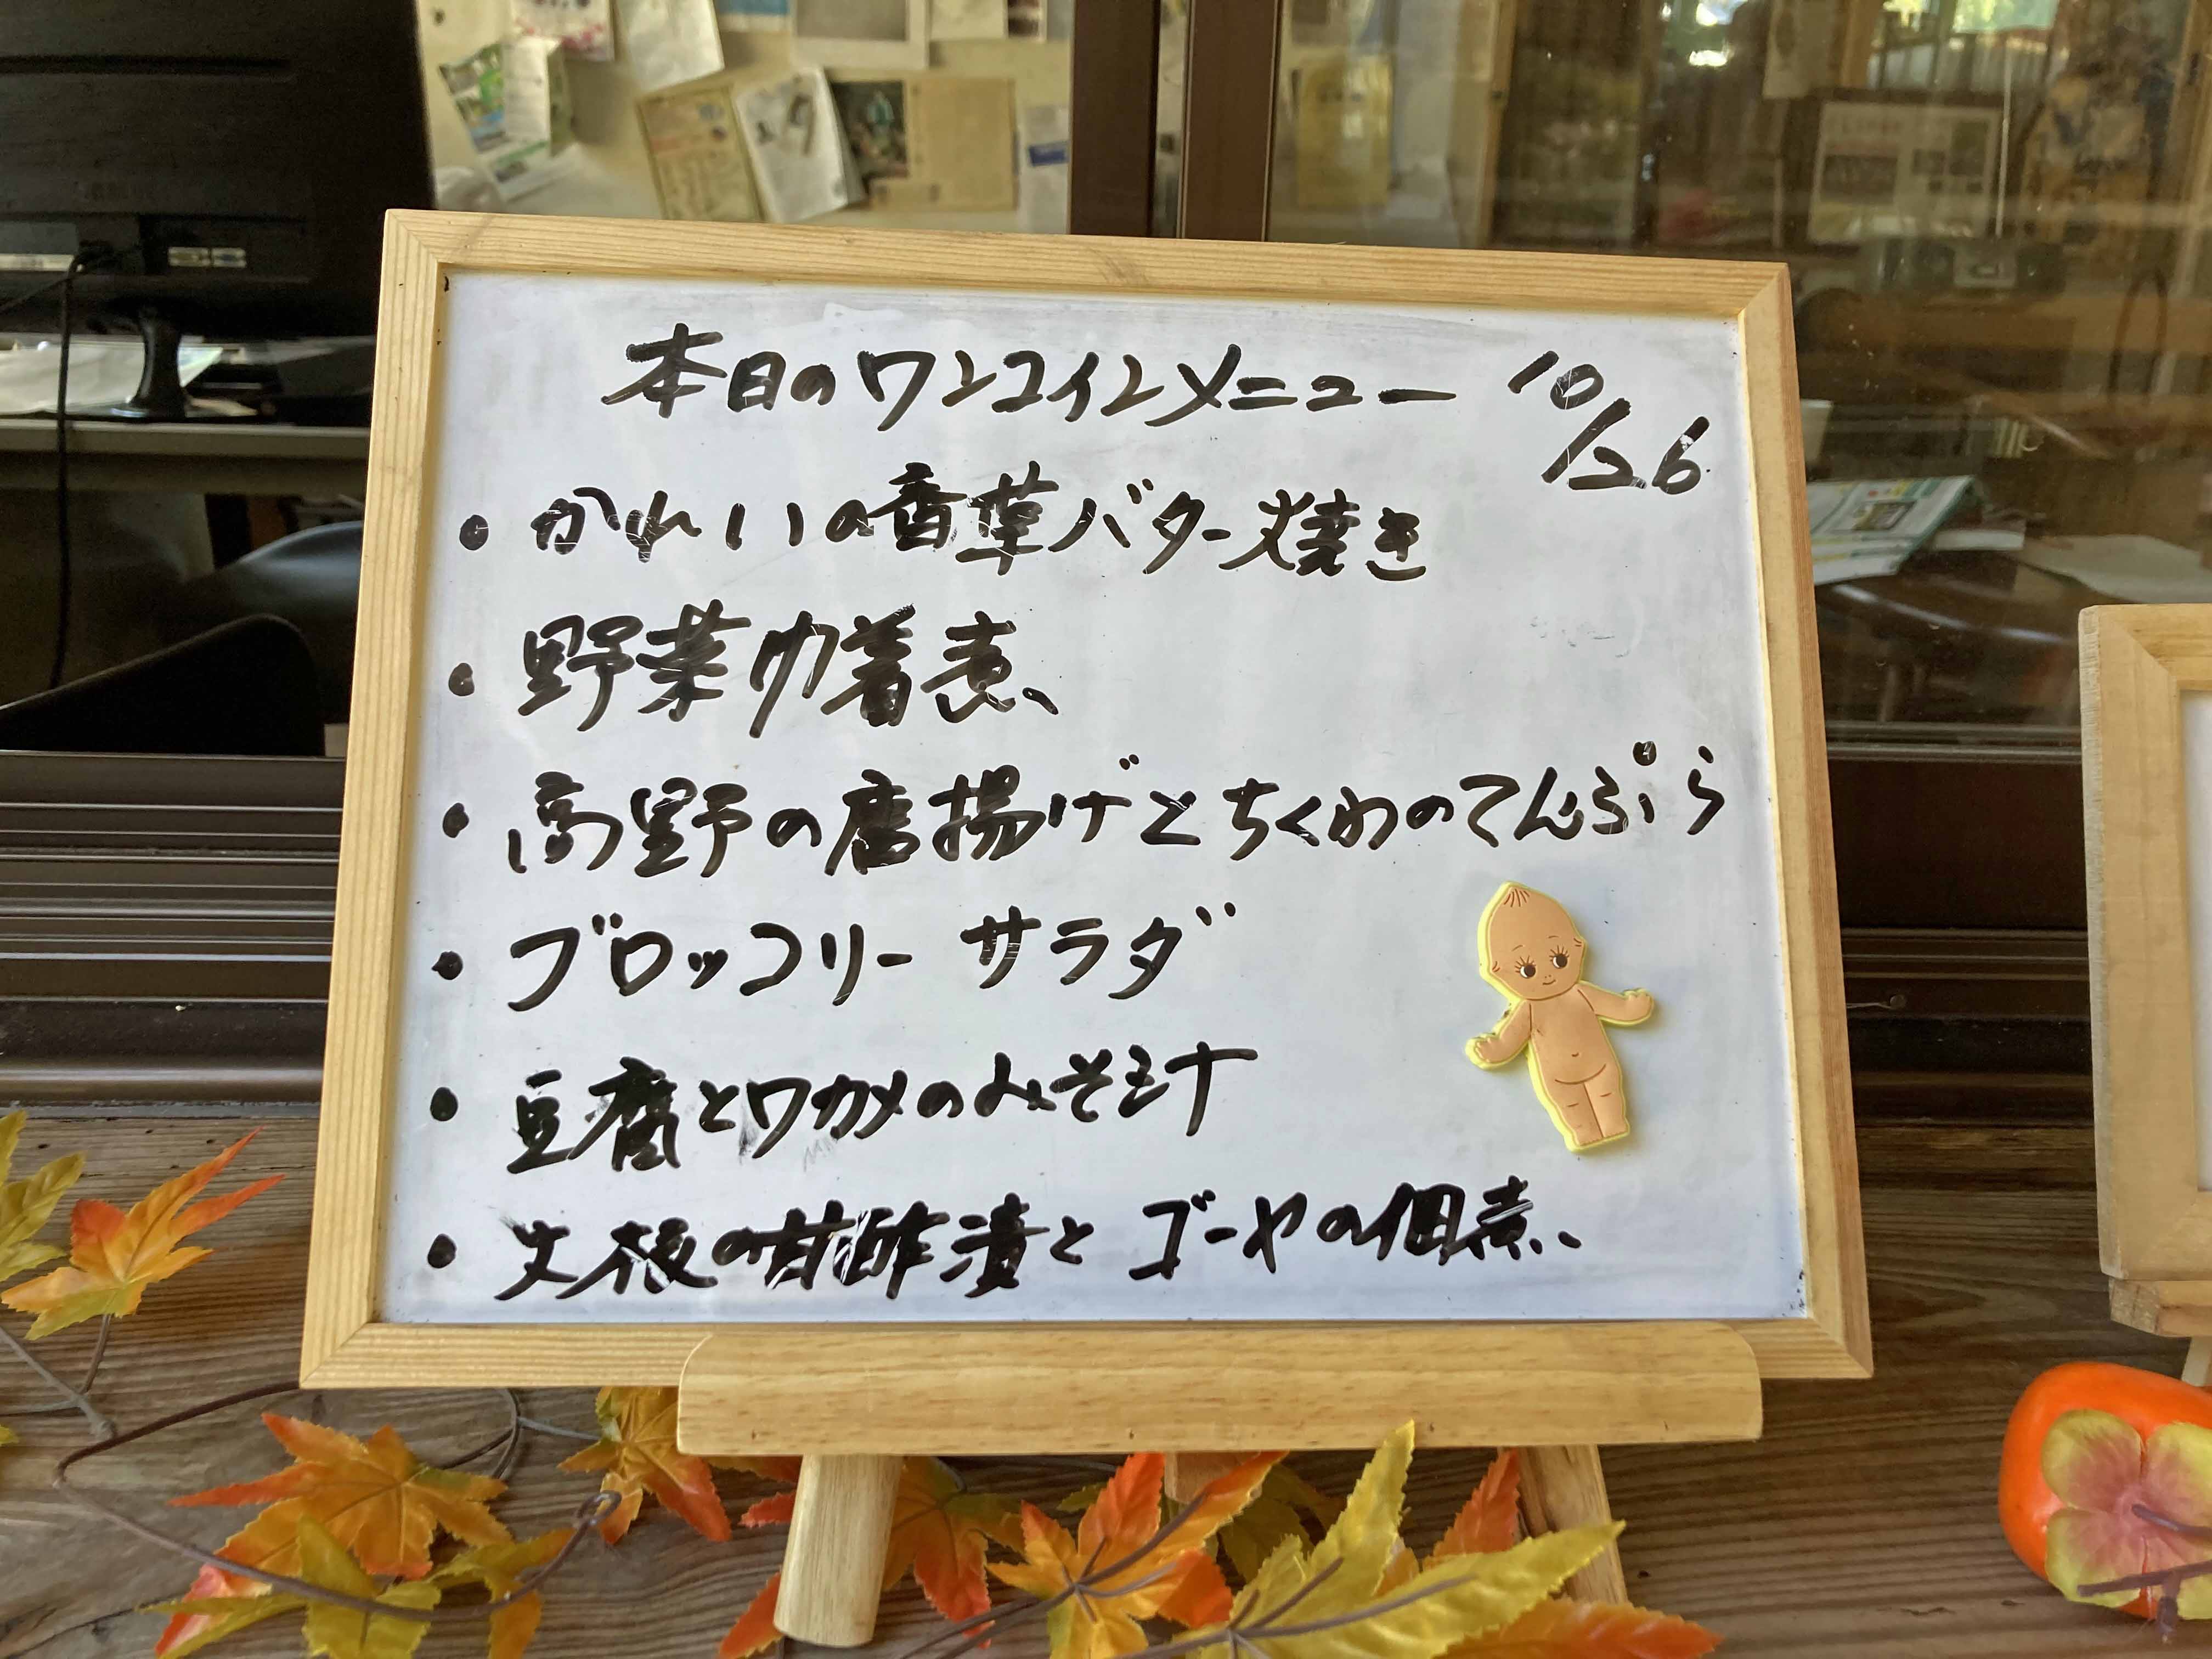 本日のワンコインメニュー 10/26
・かれいの香草バター焼き
・野菜巾着煮
・高野の唐揚げとちくわのてんぷら
・ブロッコリーサラダ
・豆腐とワカメのみそ汁
・大根の甘酢漬とゴーヤの佃煮